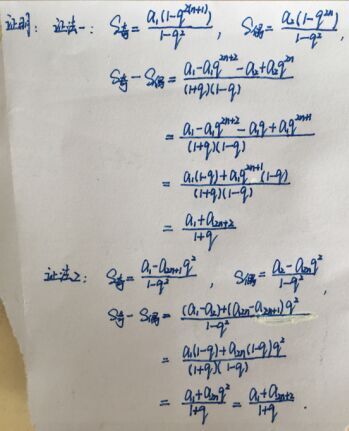 证明: 证法一: S奇=a₁(1-q²⁽ⁿ⁺¹⁾)/(1-q²), S偶=a₂(1-q²ⁿ)/(1-q²),
S奇-S偶=(a₁-a₁q²ⁿ⁺²-a₂+a₂q²ⁿ)/((1+q)(1-q))
=(a₁-a₁q²ⁿ⁺²-a₁q+a₁q²ⁿ⁺¹)/((1+q)(1-q))
=(a₁(1-q)+a₁q²ⁿ⁺¹(1-q))/((1+q)(1-q))
=(a₁+a₂ₙ₊₂)/(1+q)
证法2: S奇=(a₁-a₂ₙ₊₁q²)/(1-q²), S偶=(a₂-a₂ₙq²)/(1-q²),
S奇-S偶=((a₁-a₂)+(a₂ₙ-a₂ₙ₊₁)q²)/(1-q²)
=(a₁(1-q)+a₂ₙ(1-q)q²)/((1+q)(1-q))
=(a₁+a₂ₙq²)/(1+q)=(a₁+a₂ₙ₊₂)/(1+q).